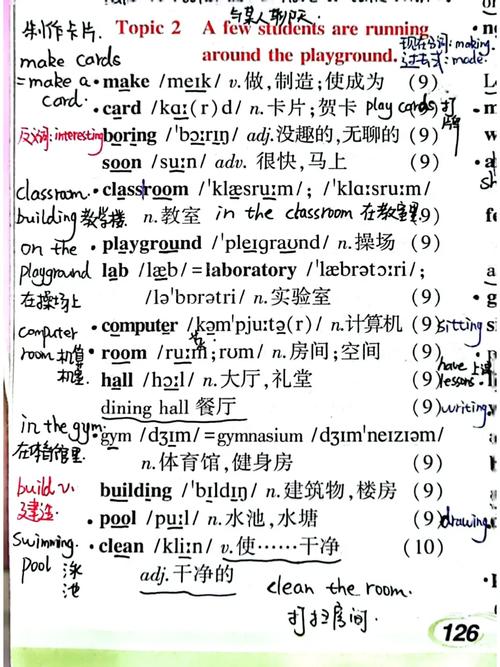 与某人聊天
制作卡片. Topic 2 A few students are running
around the playground. 现在分词: making.
过去式: made.
make cards
= make a card. • make /meɪk/ v.做,制造;使成为 (9)
• card /kɑː(r)d/ n.卡片;贺卡 play cards 打牌 (9)
反义词: interesting boring /ˈbɔːrɪŋ/ adj.没趣的,无聊的 (9)
soon /suːn/ adv. 很快,马上 (9)
classroom • classroom /ˈklæsruːm/; /ˈklɑːsruːm/
building 教学楼 n.教室 in the classroom 在教室里 (9)
on the • playground /ˈpleɪɡraʊnd/ n.操场 (9)
playground lab /læb/ = laboratory /ˈlæbrətɔːri/;
在操场上 /ləˈbɒrətri/ n.实验室 (9)
computer • computer /kəmˈpjuːtə(r)/ n.计算机 (9) sitting
room • room /ruːm; rʊm/ n.房间;空间 (9)
hall /hɔːl/ n.大厅,礼堂 (9) have lessons.
dining hall 餐厅 (9) writing
in the gym • gym /dʒɪm/ = gymnasium /dʒɪmˈneɪzɪəm/
在体育馆里 n.体育馆,健身房 (9)
build v. building /ˈbɪldɪŋ/ n.建筑物,楼房 (9)
建造 • pool /puːl/ n.水池,水塘 (9) drawing
swimming • clean /kliːn/ v.使……干净 (10)
pool 泳池 adj.干净的
clean the room.
打扫房间.
126